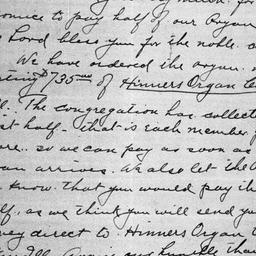 to pay half of our Organ
Lord bless you for the noble
We have ordered the organ.
$735.00 of Hinners Organ
The congregation has collect
half. that is each member
so we can pay as soon as
arrives. We also let the
know. that you would pay the
as we think you will send you
direct to. Hinners Organ